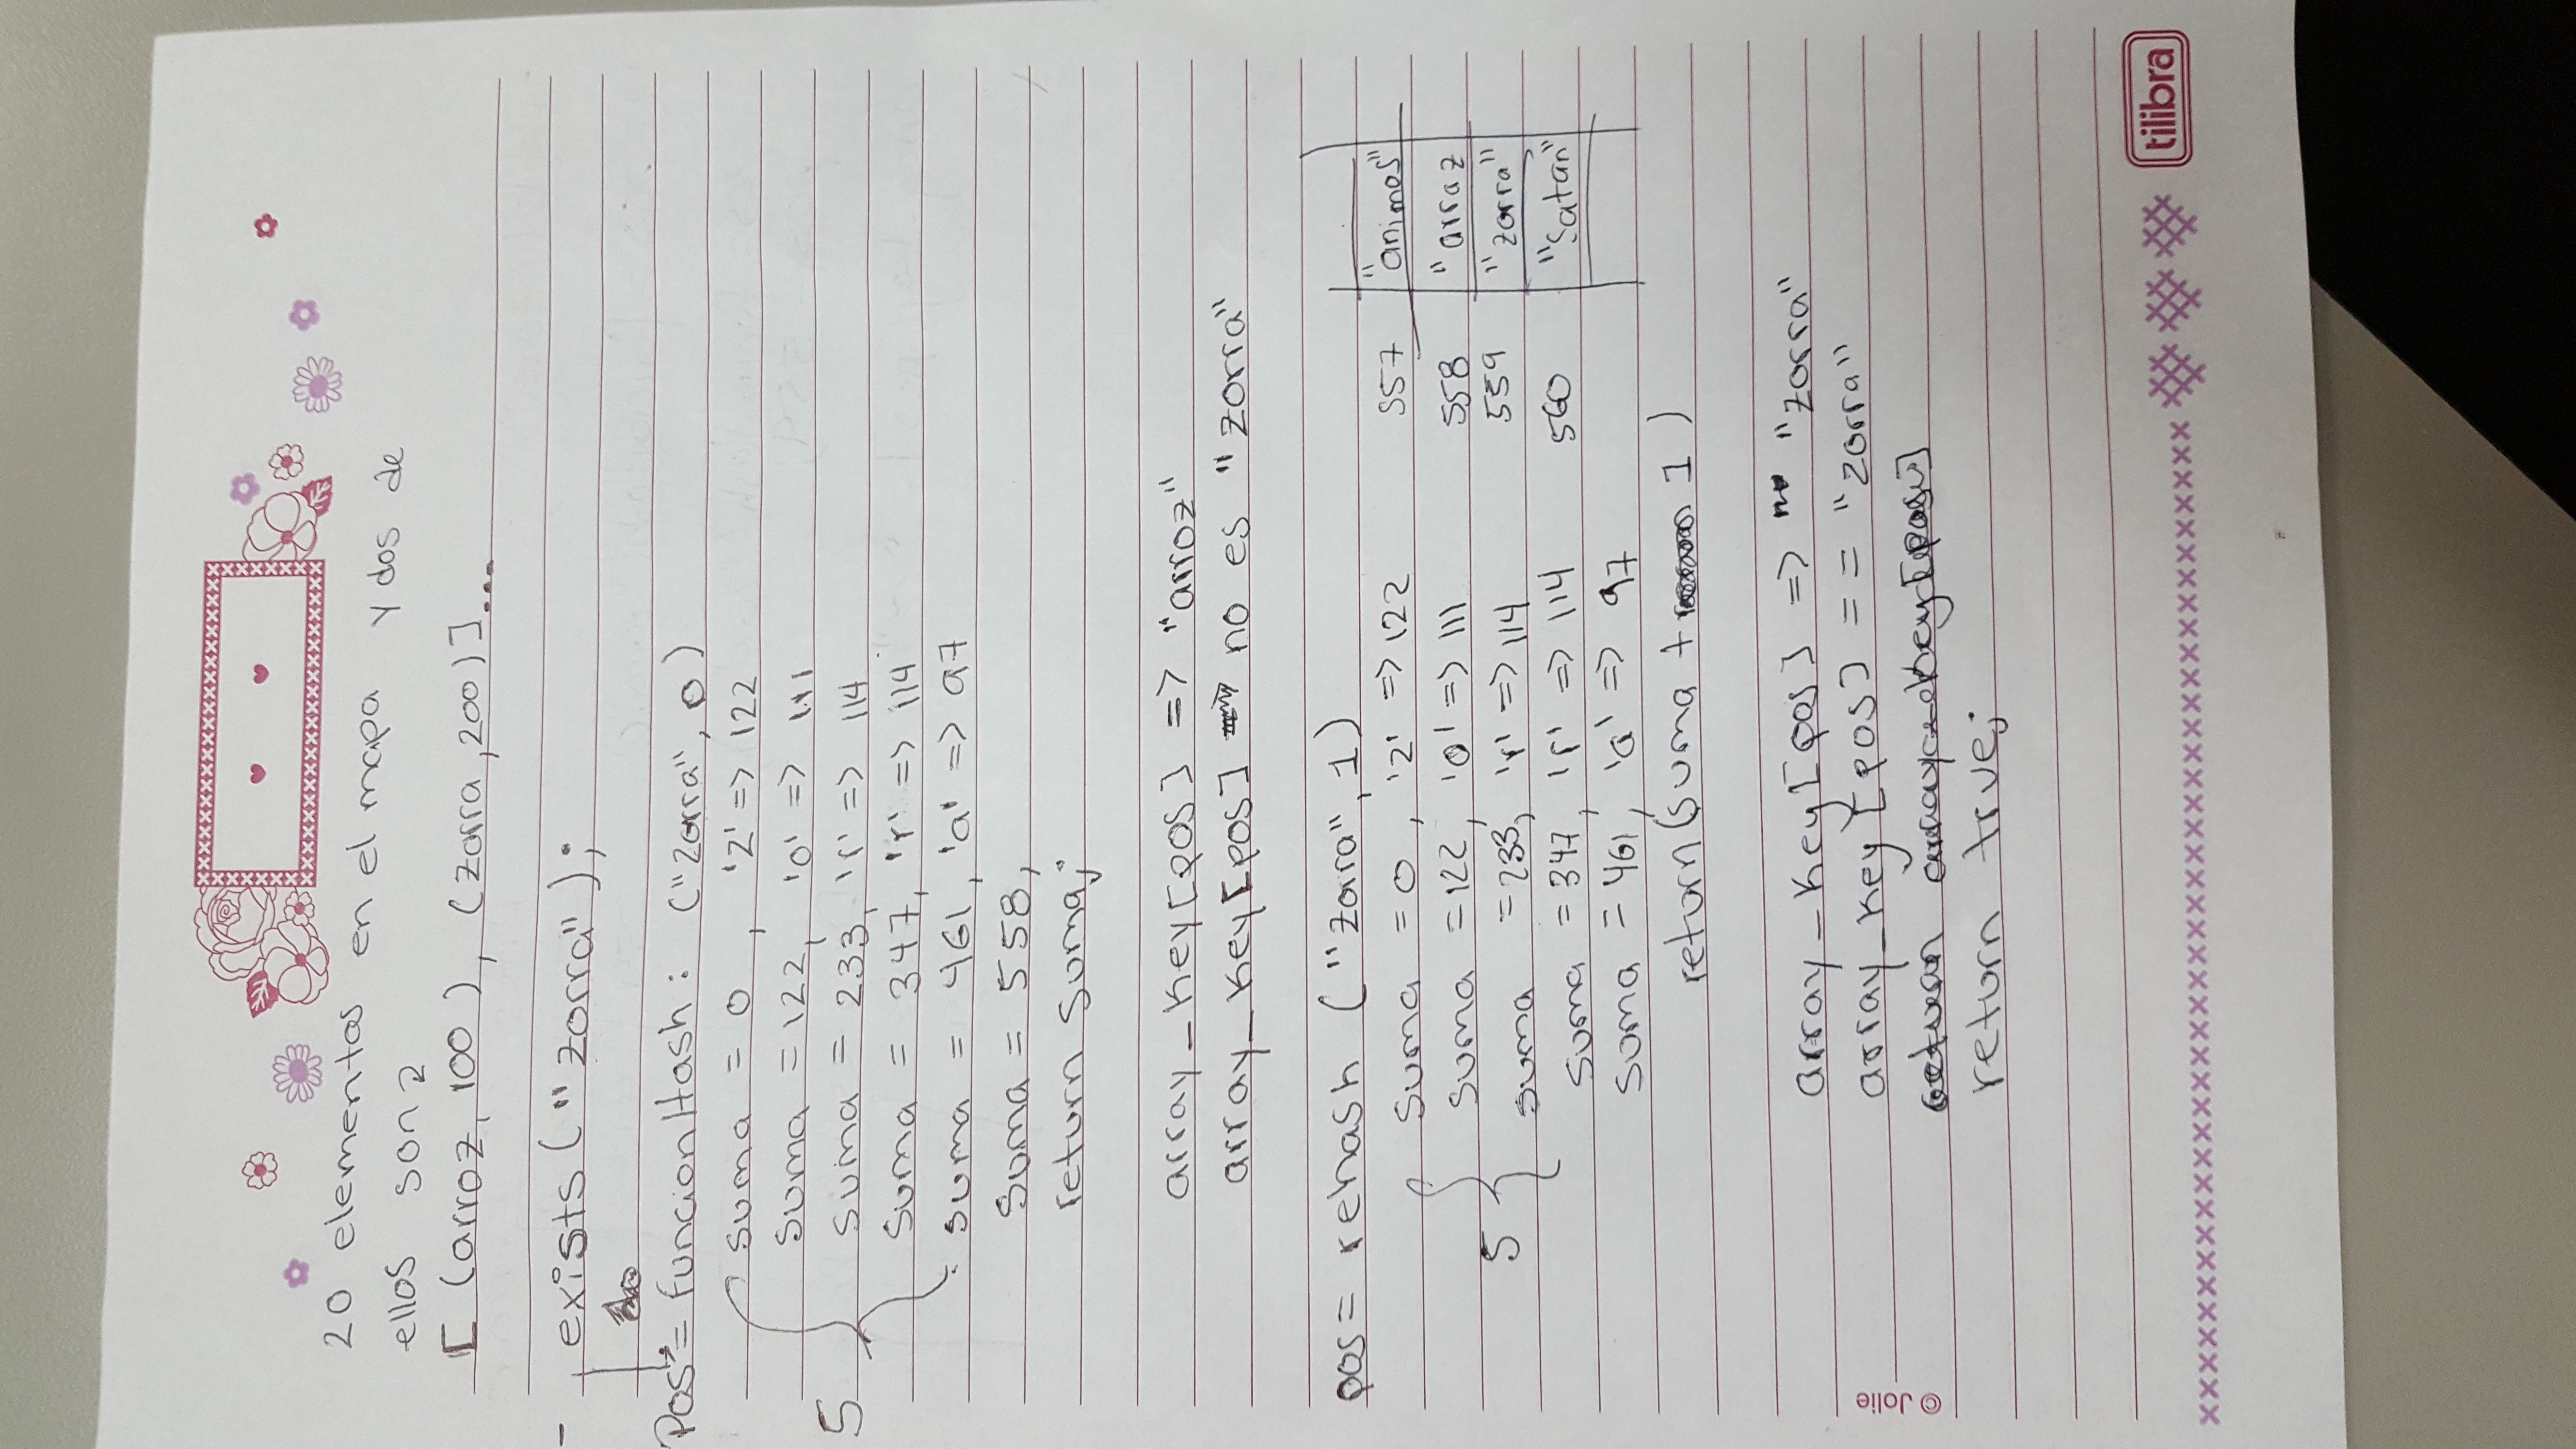 20 elementos en el mapa y dos de
ellos son 2
[ (arroz, 100 ), (zorra ,200)]...
- exists ("zorra");
Pos = funcionHash : ("zorra", 0)
suma = 0 , 'z' => 122
suma = 122, 'o' => 111
5 suma = 233, 'r' => 114
suma = 347, 'r' => 114
suma = 461, 'a' => 97
suma = 558,
return suma;
array_key[pos] => "arroz"
array_key[pos] no es "zorra"
pos = rehash ("zorra", 1)
suma = 0 , 'z' => 122 557 "animos"
suma = 122, 'o' => 111 558 "arroz
5 suma = 233, 'r' => 114 559 "zorra"
suma = 347, 'r' => 114 560 "Satan"
suma = 461, 'a' => 97
return (suma + 1 )
array_key[pos] => "zorra"
array_key [pos] == "zorra"
return array_key[pos]
return true;
© Jolie
tilibra